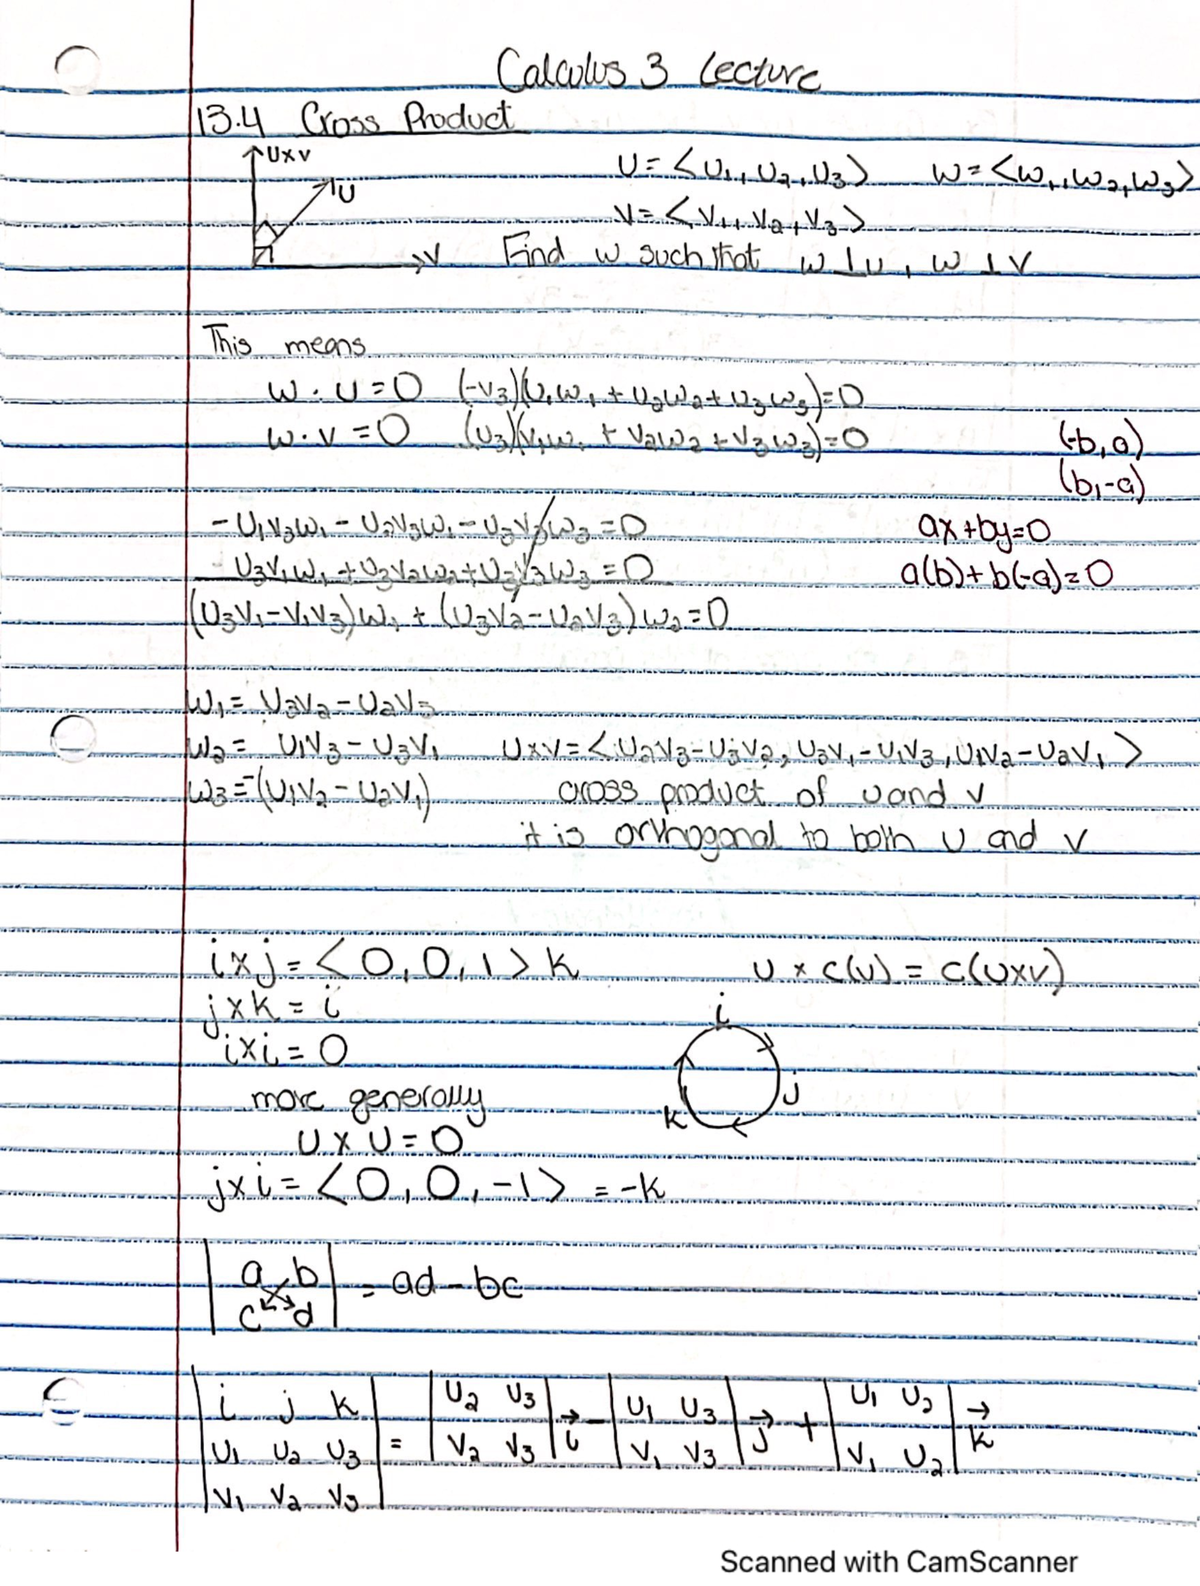 Calculus 3 Lecture
13.4 Cross Product
U×V
U
V
U = <U₁, U₂, U₃>   W = <W₁, W₂, W₃>
V = <V₁, V₂, V₃>
Find w such that w ⊥ u, w ⊥ v
This means
w · u = 0   (-V₃)(U₁W₁ + U₂W₂ + U₃W₃) = 0
w · v = 0   (U₃)(V₁W₁ + V₂W₂ + V₃W₃) = 0
(-b, a)
(b, -a)
-U₁V₃W₁ - U₂V₃W₂ - U₃V₃W₃ = 0
ax + by = 0
U₃V₁W₁ + U₃V₂W₂ + U₃V₃W₃ = 0
a(b) + b(-a) = 0
(U₃V₁ - V₁V₃)W₁ + (U₃V₂ - U₂V₃)W₂ = 0
W₁ = U₃V₂ - U₂V₃
W₂ = U₁V₃ - U₃V₁   U×V = <U₂V₃ - U₃V₂, U₃V₁ - U₁V₃, U₁V₂ - U₂V₁>
W₃ = -(U₁V₂ - U₂V₁)   cross product of u and v
it is orthogonal to both u and v
i×j = <0, 0, 1> k   U × c(v) = c(U×V)
j×k = i
i×i = 0
i
j
k
more generally
U × U = 0
j×i = <0, 0, -1> = -k
|a b| = ad - bc
|c d|
|i j k| = |U₂ U₃| i⃗ - |U₁ U₃| j⃗ + |U₁ U₂| k⃗
|U₁ U₂ U₃| |V₂ V₃| |V₁ V₃| |V₁ U₂|
|V₁ V₂ V₃|
Scanned with CamScanner